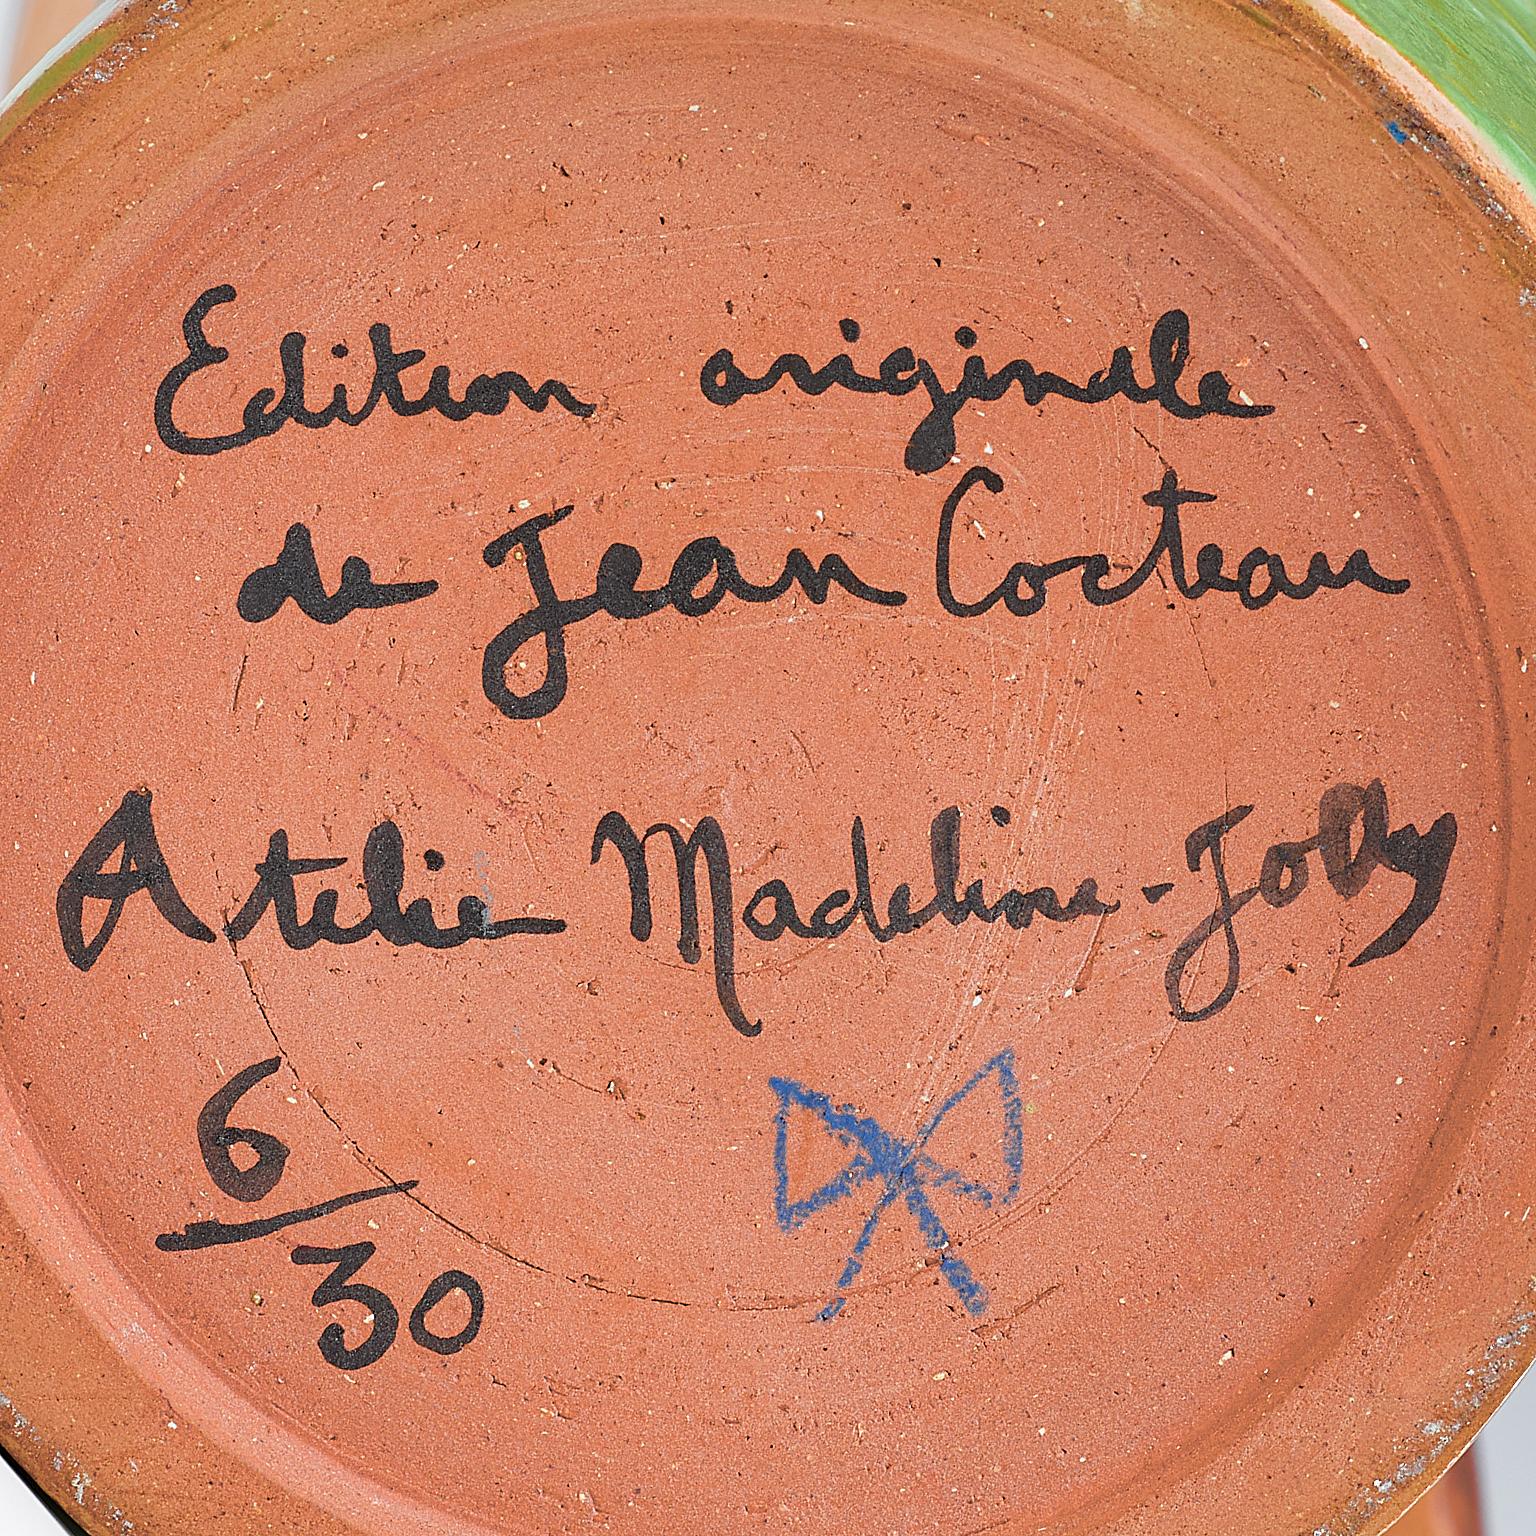 Edition originale
de Jean Cocteau
Atelier Madeline-Jolly
6/30